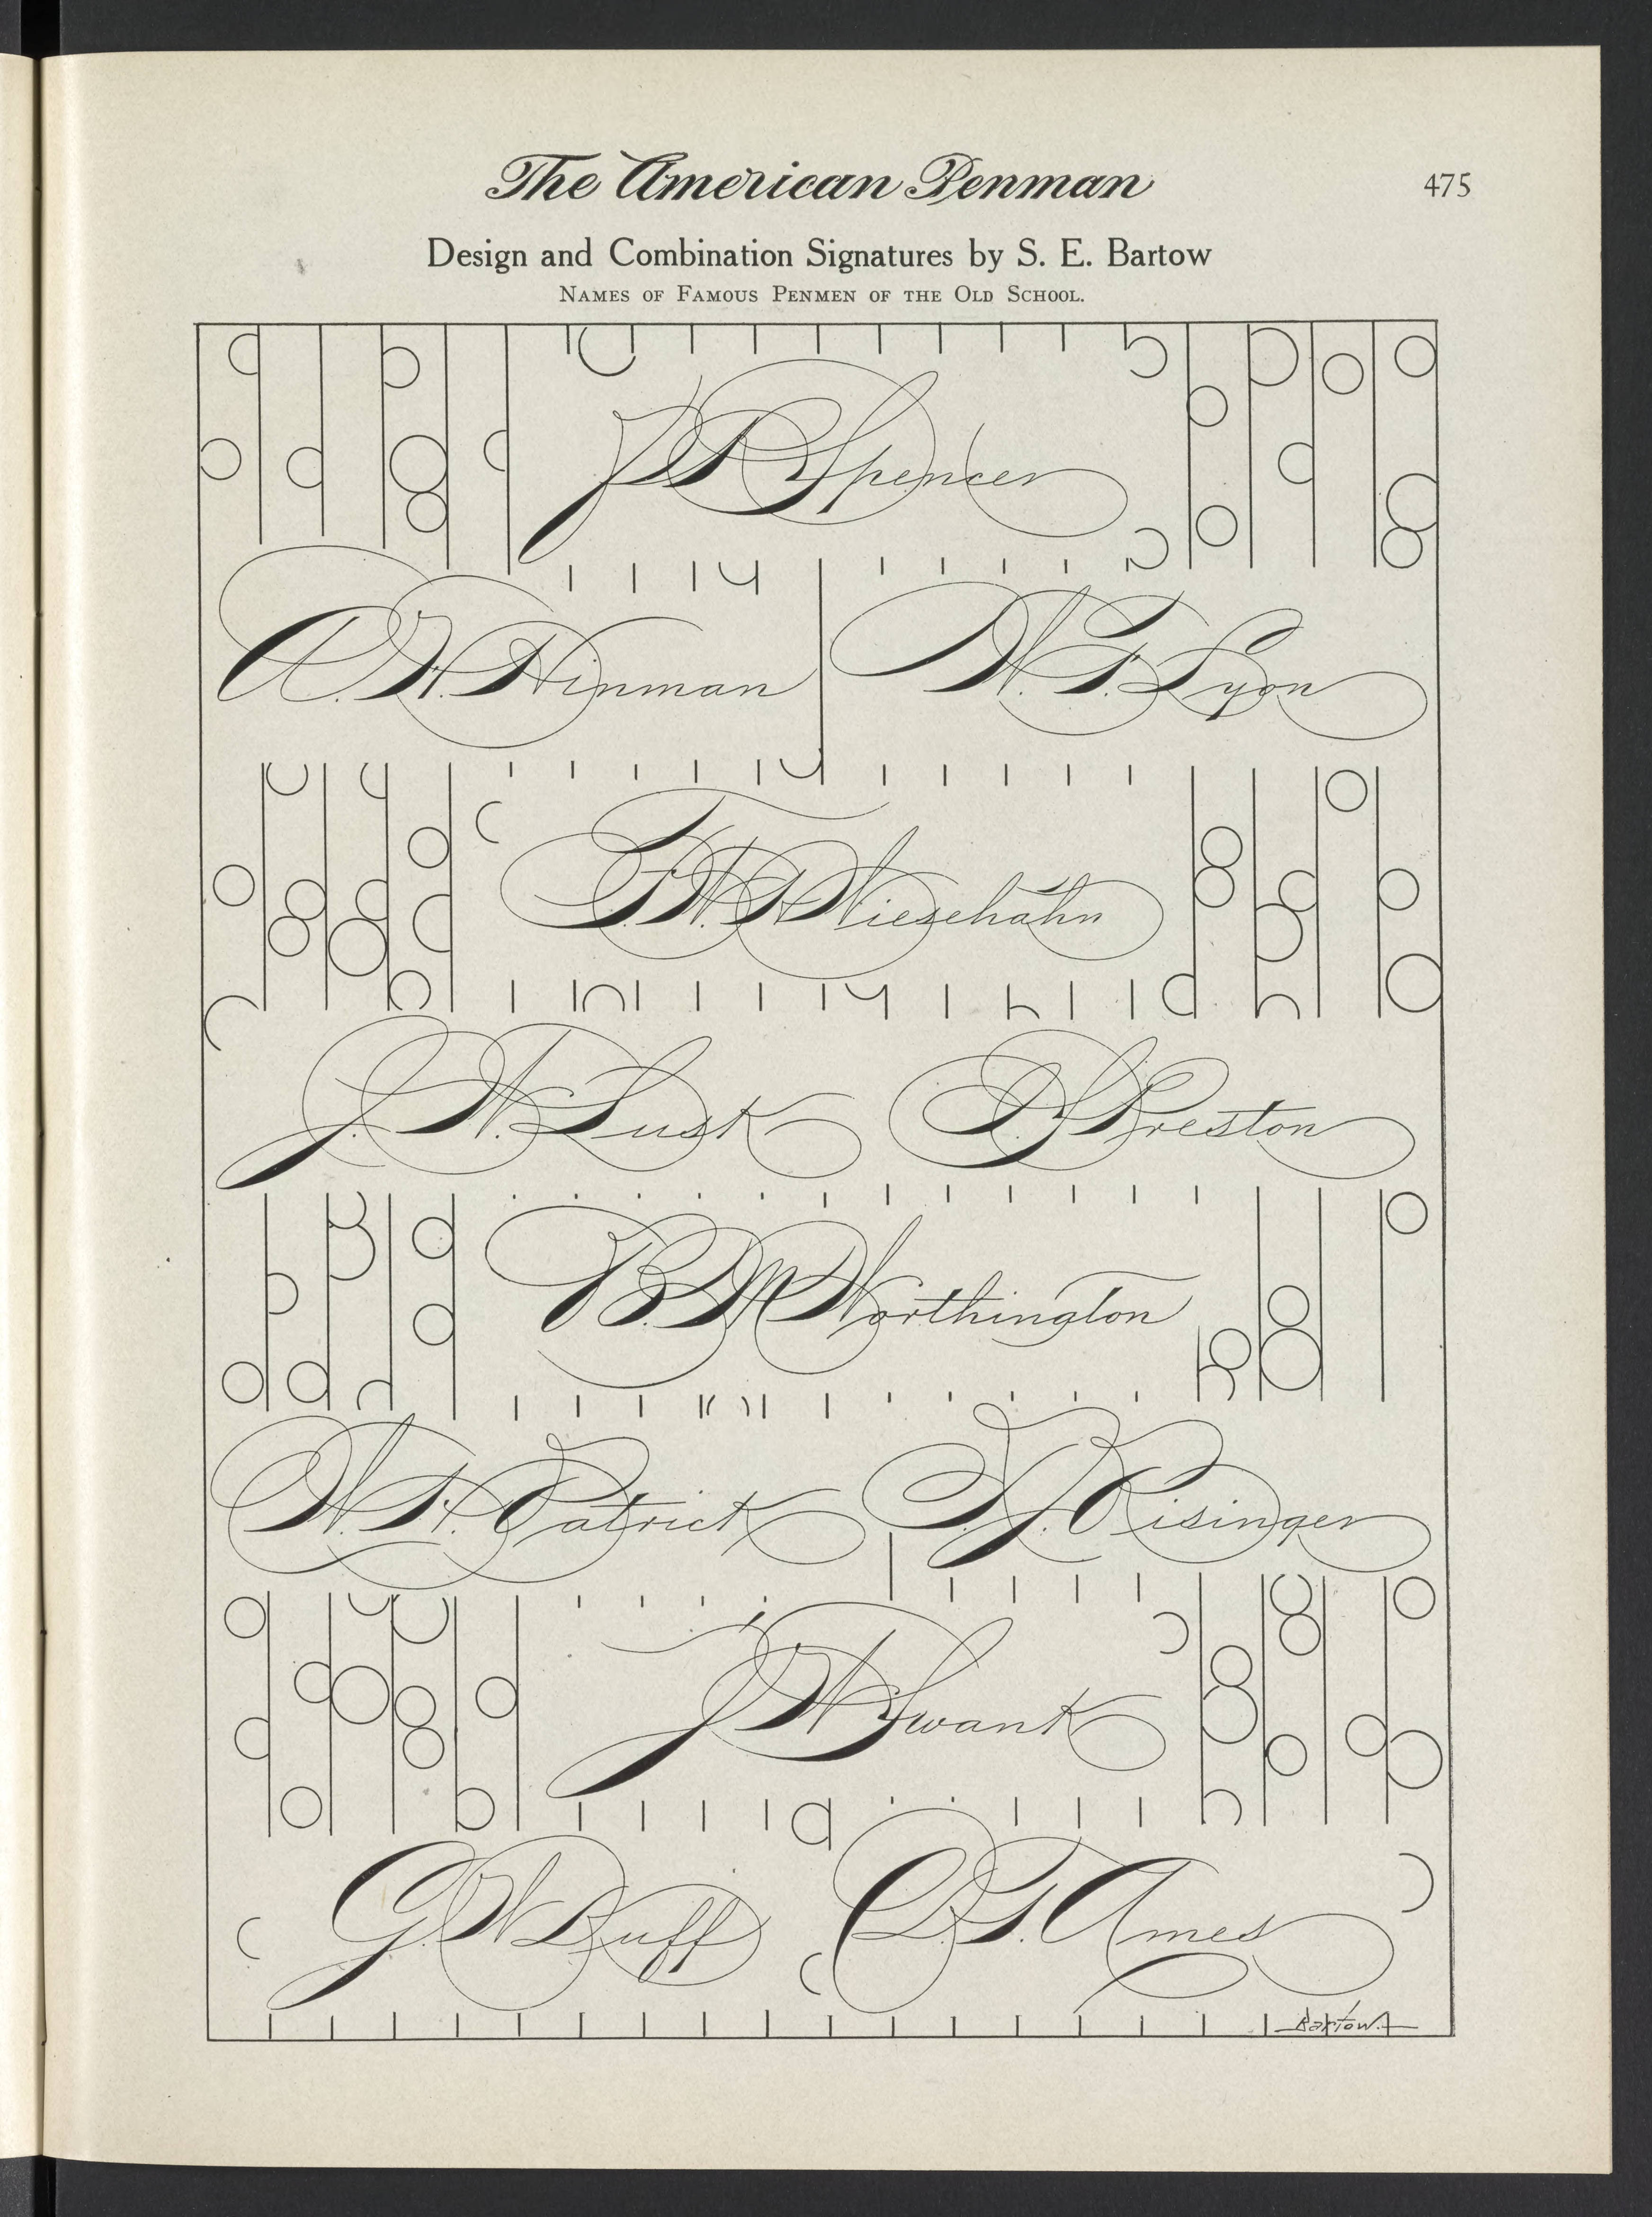 The American Penman
475
Design and Combination Signatures by S. E. Bartow
NAMES OF FAMOUS PENMEN OF THE OLD SCHOOL.
J R Spencer
A. H. Hinman W. E. Lyon
F. W. H. Wiesehahn
J. W. Lusk D. S. Preston
B. M. Worthington
W. H. Patrick T. J. Risinger
J W Swank
G. W. Duff D. T. Ames
Bartow.